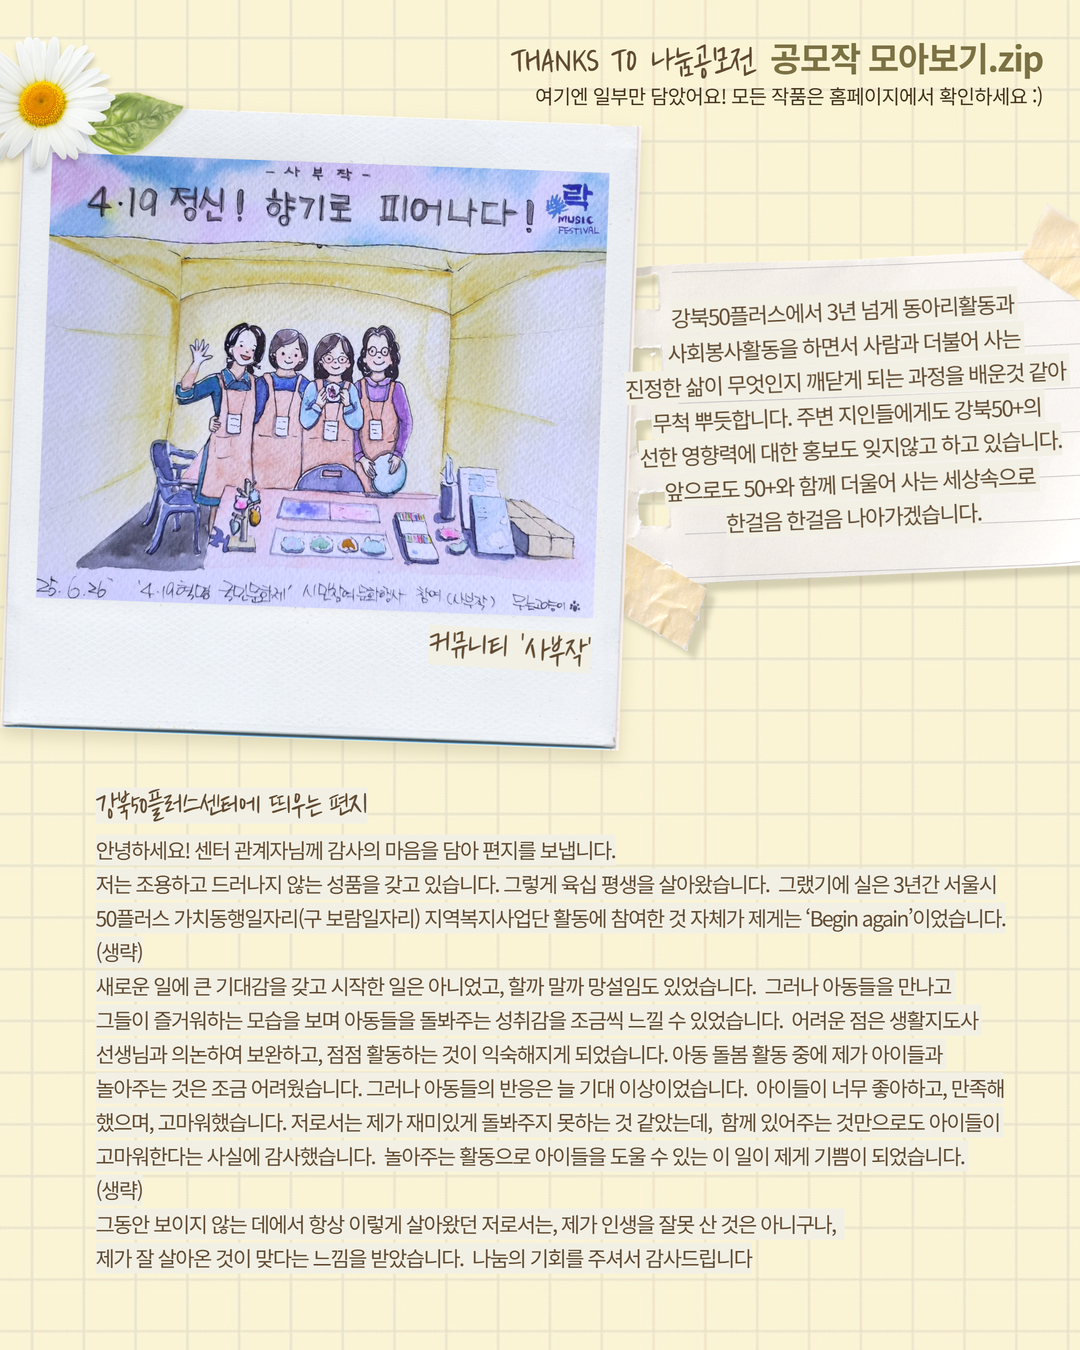 THANKS TO 나눔공모전 공모작 모아보기.zip
여기엔 일부만 담았어요! 모든 작품은 홈페이지에서 확인하세요 :)
- 사 부 작 -
4·19 정신! 향기로 피어나다!
락
MUSIC
FESTIVAL
25. 6. 26 '4.19혁명 국민문화제' 시민참여문화행사 참여 (사부작)
커뮤니티 '사부작'
강북50플러스에서 3년 넘게 동아리활동과
사회봉사활동을 하면서 사람과 더불어 사는
진정한 삶이 무엇인지 깨닫게 되는 과정을 배운것 같아
무척 뿌듯합니다. 주변 지인들에게도 강북50+의
선한 영향력에 대한 홍보도 잊지않고 하고 있습니다.
앞으로도 50+와 함께 더울어 사는 세상속으로
한걸음 한걸음 나아가겠습니다.
강북50플러스센터에 띄우는 편지
안녕하세요! 센터 관계자님께 감사의 마음을 담아 편지를 보냅니다.
저는 조용하고 드러나지 않는 성품을 갖고 있습니다. 그렇게 육십 평생을 살아왔습니다. 그랬기에 실은 3년간 서울시
50플러스 가치동행일자리(구 보람일자리) 지역복지사업단 활동에 참여한 것 자체가 제게는 ‘Begin again’이었습니다.
(생략)
새로운 일에 큰 기대감을 갖고 시작한 일은 아니었고, 할까 말까 망설임도 있었습니다. 그러나 아동들을 만나고
그들이 즐거워하는 모습을 보며 아동들을 돌봐주는 성취감을 조금씩 느낄 수 있었습니다. 어려운 점은 생활지도사
선생님과 의논하여 보완하고, 점점 활동하는 것이 익숙해지게 되었습니다. 아동 돌봄 활동 중에 제가 아이들과
놀아주는 것은 조금 어려웠습니다. 그러나 아동들의 반응은 늘 기대 이상이었습니다. 아이들이 너무 좋아하고, 만족해
했으며, 고마워했습니다. 저로서는 제가 재미있게 돌봐주지 못하는 것 같았는데, 함께 있어주는 것만으로도 아이들이
고마워한다는 사실에 감사했습니다. 놀아주는 활동으로 아이들을 도울 수 있는 이 일이 제게 기쁨이 되었습니다.
(생략)
그동안 보이지 않는 데에서 항상 이렇게 살아왔던 저로서는, 제가 인생을 잘못 산 것은 아니구나,
제가 잘 살아온 것이 맞다는 느낌을 받았습니다. 나눔의 기회를 주셔서 감사드립니다